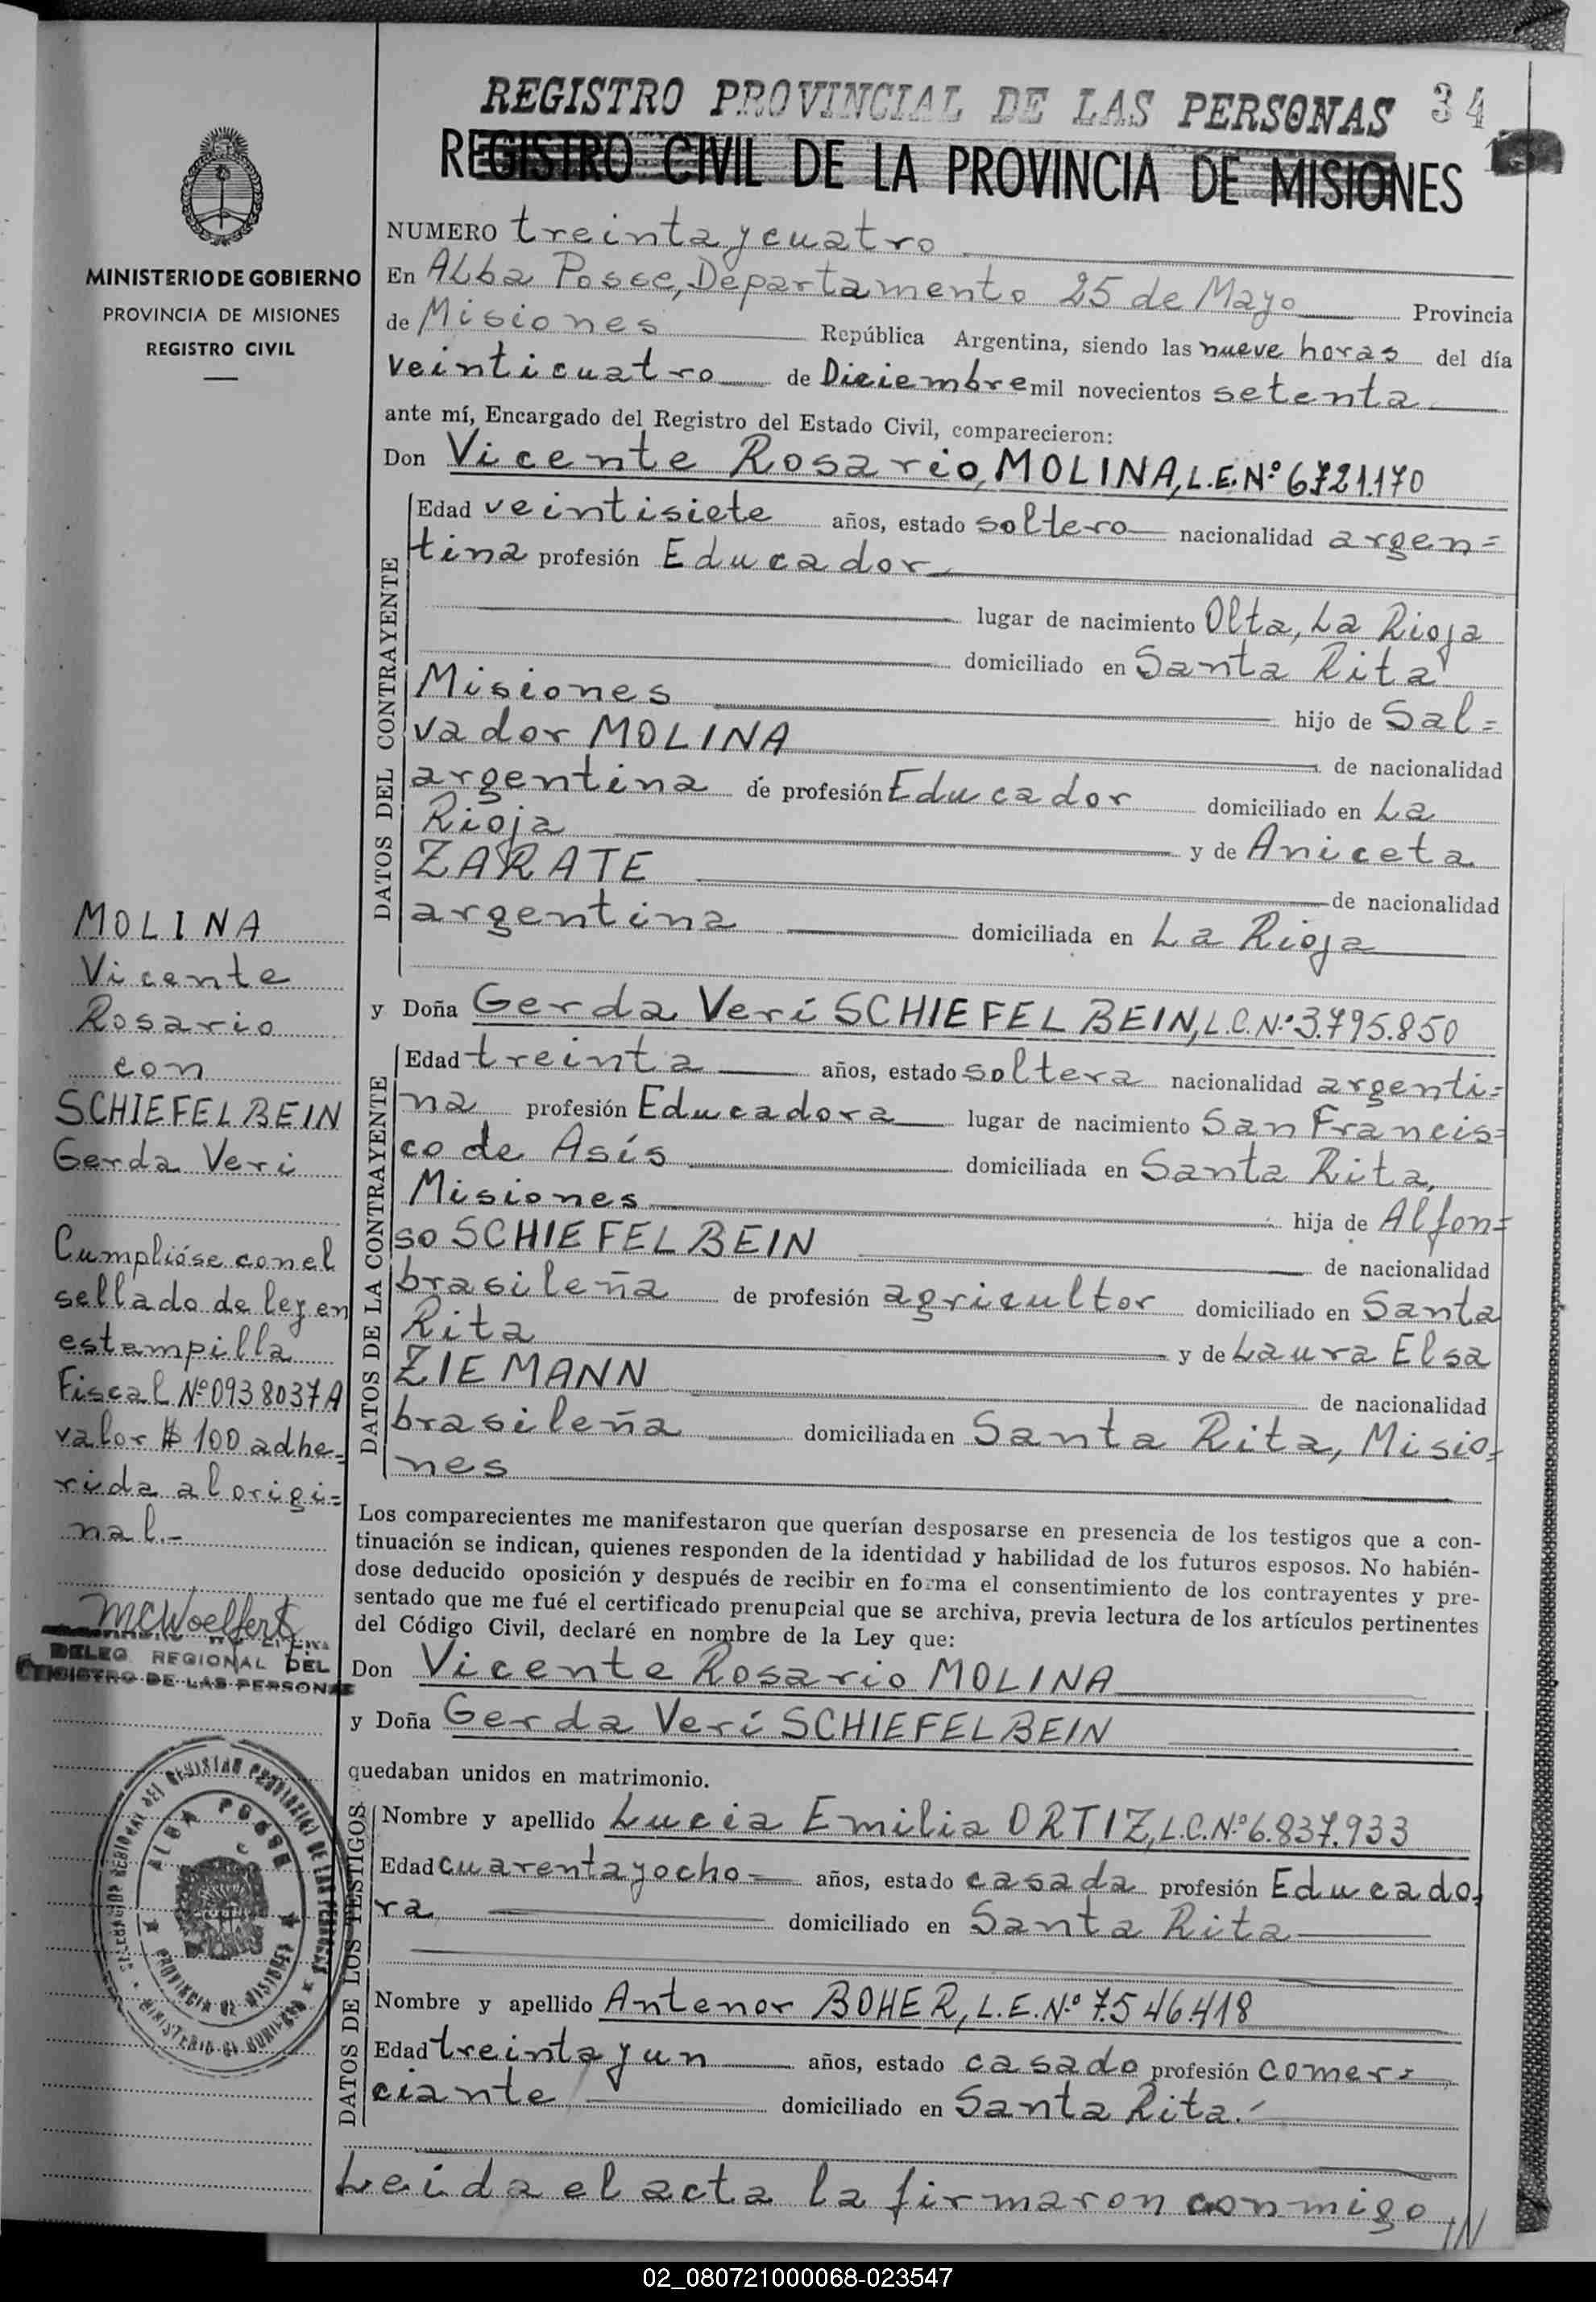 REGISTRO PROVINCIAL DE LAS PERSONAS 34
REGISTRO CIVIL DE LA PROVINCIA DE MISIONES
MINISTERIO DE GOBIERNO
PROVINCIA DE MISIONES
REGISTRO CIVIL
NUMERO treinta y cuatro
En Alba Posse, Departamento 25 de Mayo Provincia
de Misiones República Argentina, siendo las nueve horas del día
veinticuatro de Diciembre mil novecientos setenta
ante mí, Encargado del Registro del Estado Civil, comparecieron:
Don Vicente Rosario, MOLINA, L.E. Nº 6721.170
DATOS DEL CONTRAYENTE
Edad veintisiete años, estado soltero nacionalidad argen=
tina profesión Educador
lugar de nacimiento Olta, La Rioja
domiciliado en Santa Rita
Misiones hijo de Sal=
vador MOLINA de nacionalidad
argentina de profesión Educador domiciliado en La
Rioja y de Aniceta
ZARATE de nacionalidad
argentina domiciliada en La Rioja
y Doña Gerda Veri SCHIEFELBEIN, L.C. Nº 3.795.850
DATOS DE LA CONTRAYENTE
Edad treinta años, estado soltera nacionalidad argenti=
na profesión Educadora lugar de nacimiento San Francis=
co de Asís domiciliada en Santa Rita,
Misiones hija de Alfon=
so SCHIEFELBEIN de nacionalidad
brasileña de profesión agricultor domiciliado en Santa
Rita y de Laura Elsa
ZIEMANN de nacionalidad
brasileña domiciliada en Santa Rita, Misio=
nes
MOLINA
Vicente
Rosario
con
SCHIEFELBEIN
Gerda Veri
Cumplióse con el
sellado de ley en
estampilla
Fiscal Nº 0938037A
valor $ 100 adhe=
rida al origi=
nal.-
MCWoelfert
DELEG REGIONAL DEL
REGISTRO DE LAS PERSONAS
DELEGACION REGIONAL DEL REGISTRO PROVINCIAL DE LAS PERSONAS
ALBA POSSE
PROVINCIA DE MISIONES
MINISTERIO DE GOBIERNO
Los comparecientes me manifestaron que querían desposarse en presencia de los testigos que a con-
tinuación se indican, quienes responden de la identidad y habilidad de los futuros esposos. No habién-
dose deducido oposición y después de recibir en forma el consentimiento de los contrayentes y pre-
sentado que me fué el certificado prenupcial que se archiva, previa lectura de los artículos pertinentes
del Código Civil, declaré en nombre de la Ley que:
Don Vicente Rosario MOLINA
y Doña Gerda Veri SCHIEFELBEIN
quedaban unidos en matrimonio.
DATOS DE LOS TESTIGOS
Nombre y apellido Lucia Emilia ORTIZ, L.C. Nº 6.837.933
Edad cuarenta y ocho años, estado casada profesión Educado,
ra domiciliado en Santa Rita
Nombre y apellido Antenor BOHER, L.E. Nº 7.546.418
Edad treinta y un años, estado casado profesión comer=
ciante domiciliado en Santa Rita.
Leída el acta la firmaron conmigo
02_080721000068-023547